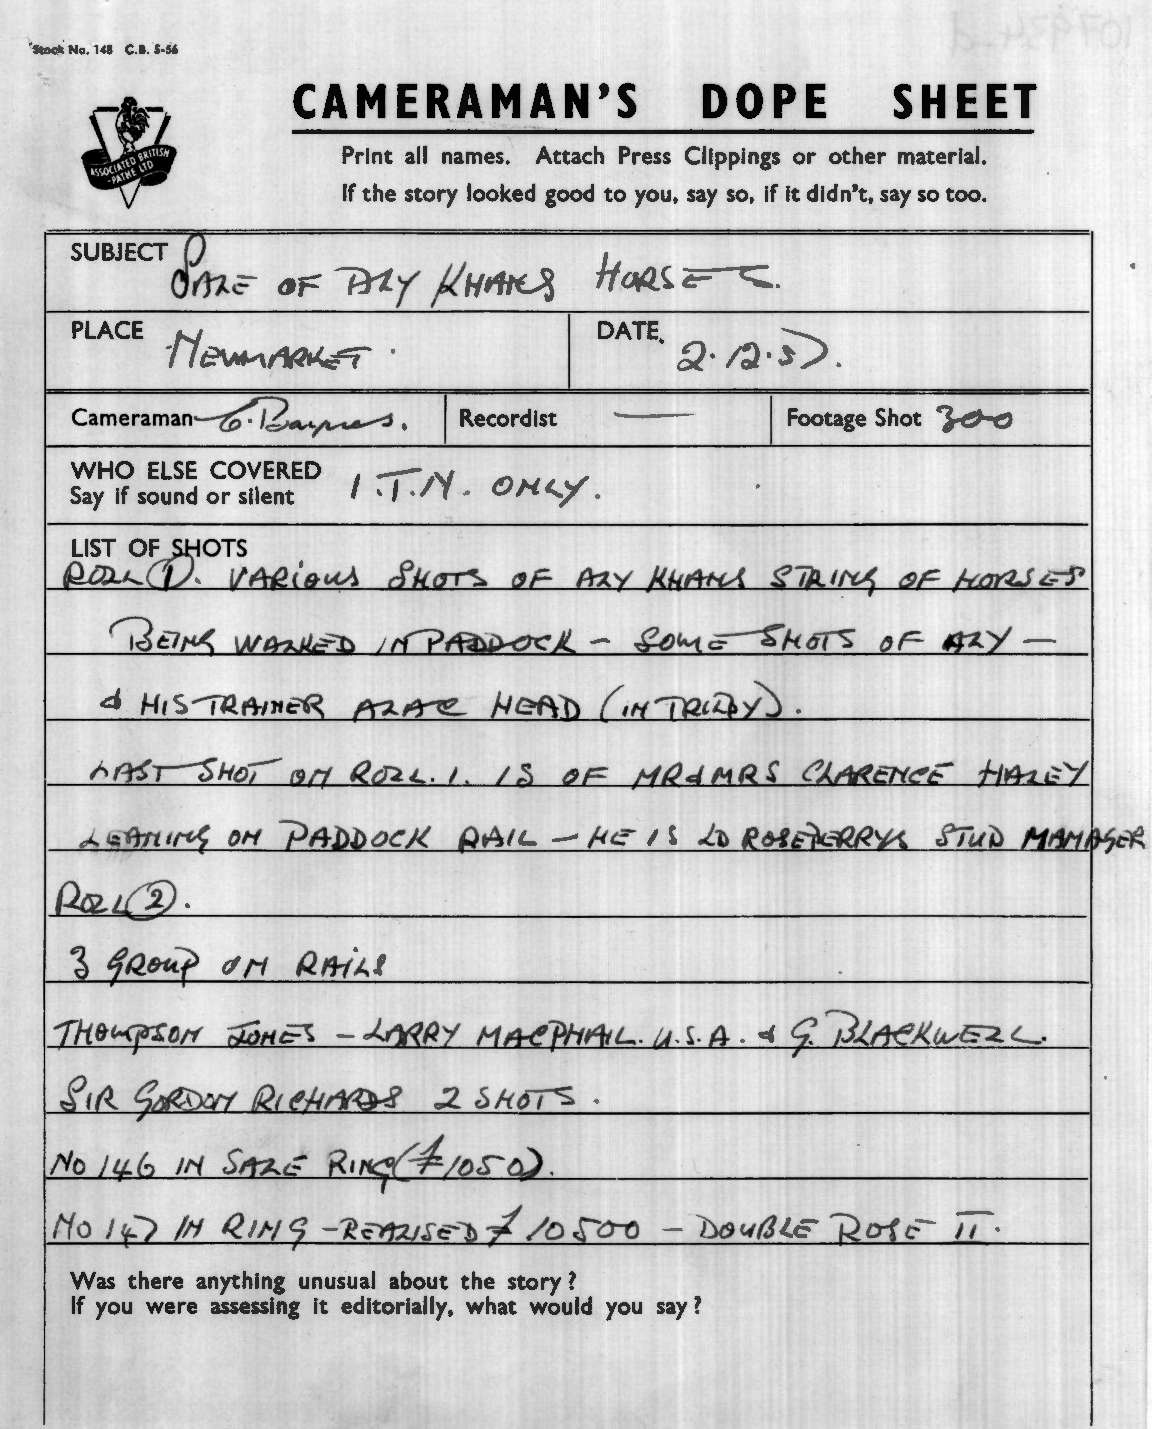 Stock No. 148 C.B. 5-56
CAMERAMAN'S DOPE SHEET
ASSOCIATED BRITISH
-PATHE LTD
Print all names. Attach Press Clippings or other material.
If the story looked good to you, say so, if it didn't, say so too.
SUBJECT SALE OF ALY KHANS HORSES.
PLACE NEWMARKET.
DATE. 2.12.57.
Cameraman C. Baynes.
Recordist —
Footage Shot 300
WHO ELSE COVERED
Say if sound or silent I.T.N. ONLY.
LIST OF SHOTS
ROLL (1). VARIOUS SHOTS OF ALY KHANS STRING OF HORSES
BEING WALKED IN PADDOCK - SOME SHOTS OF ALY -
& HIS TRAINER ALAC HEAD (IN TRILBY).
LAST SHOT ON ROLL. 1. IS OF MR & MRS CLARENCE HALEY
LEANING ON PADDOCK RAIL - HE IS LD ROSEBERRYS STUD MANAGER
ROLL (2).
3 GROUP ON RAILS
THOMPSON JONES - LARRY MACPHAIL. U.S.A. & G. BLACKWELL.
SIR GORDON RICHARDS 2 SHOTS.
NO 146 IN SALE RING (£1050).
NO 147 IN RING - REALISED £10500 - DOUBLE ROSE II.
Was there anything unusual about the story?
If you were assessing it editorially, what would you say?